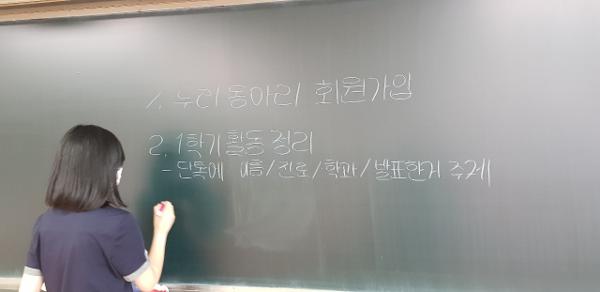 1. 누리동아리 회원가입
2. 1학기 활동 정리
- 단톡에 이름/진로/학과/발표한거 주제